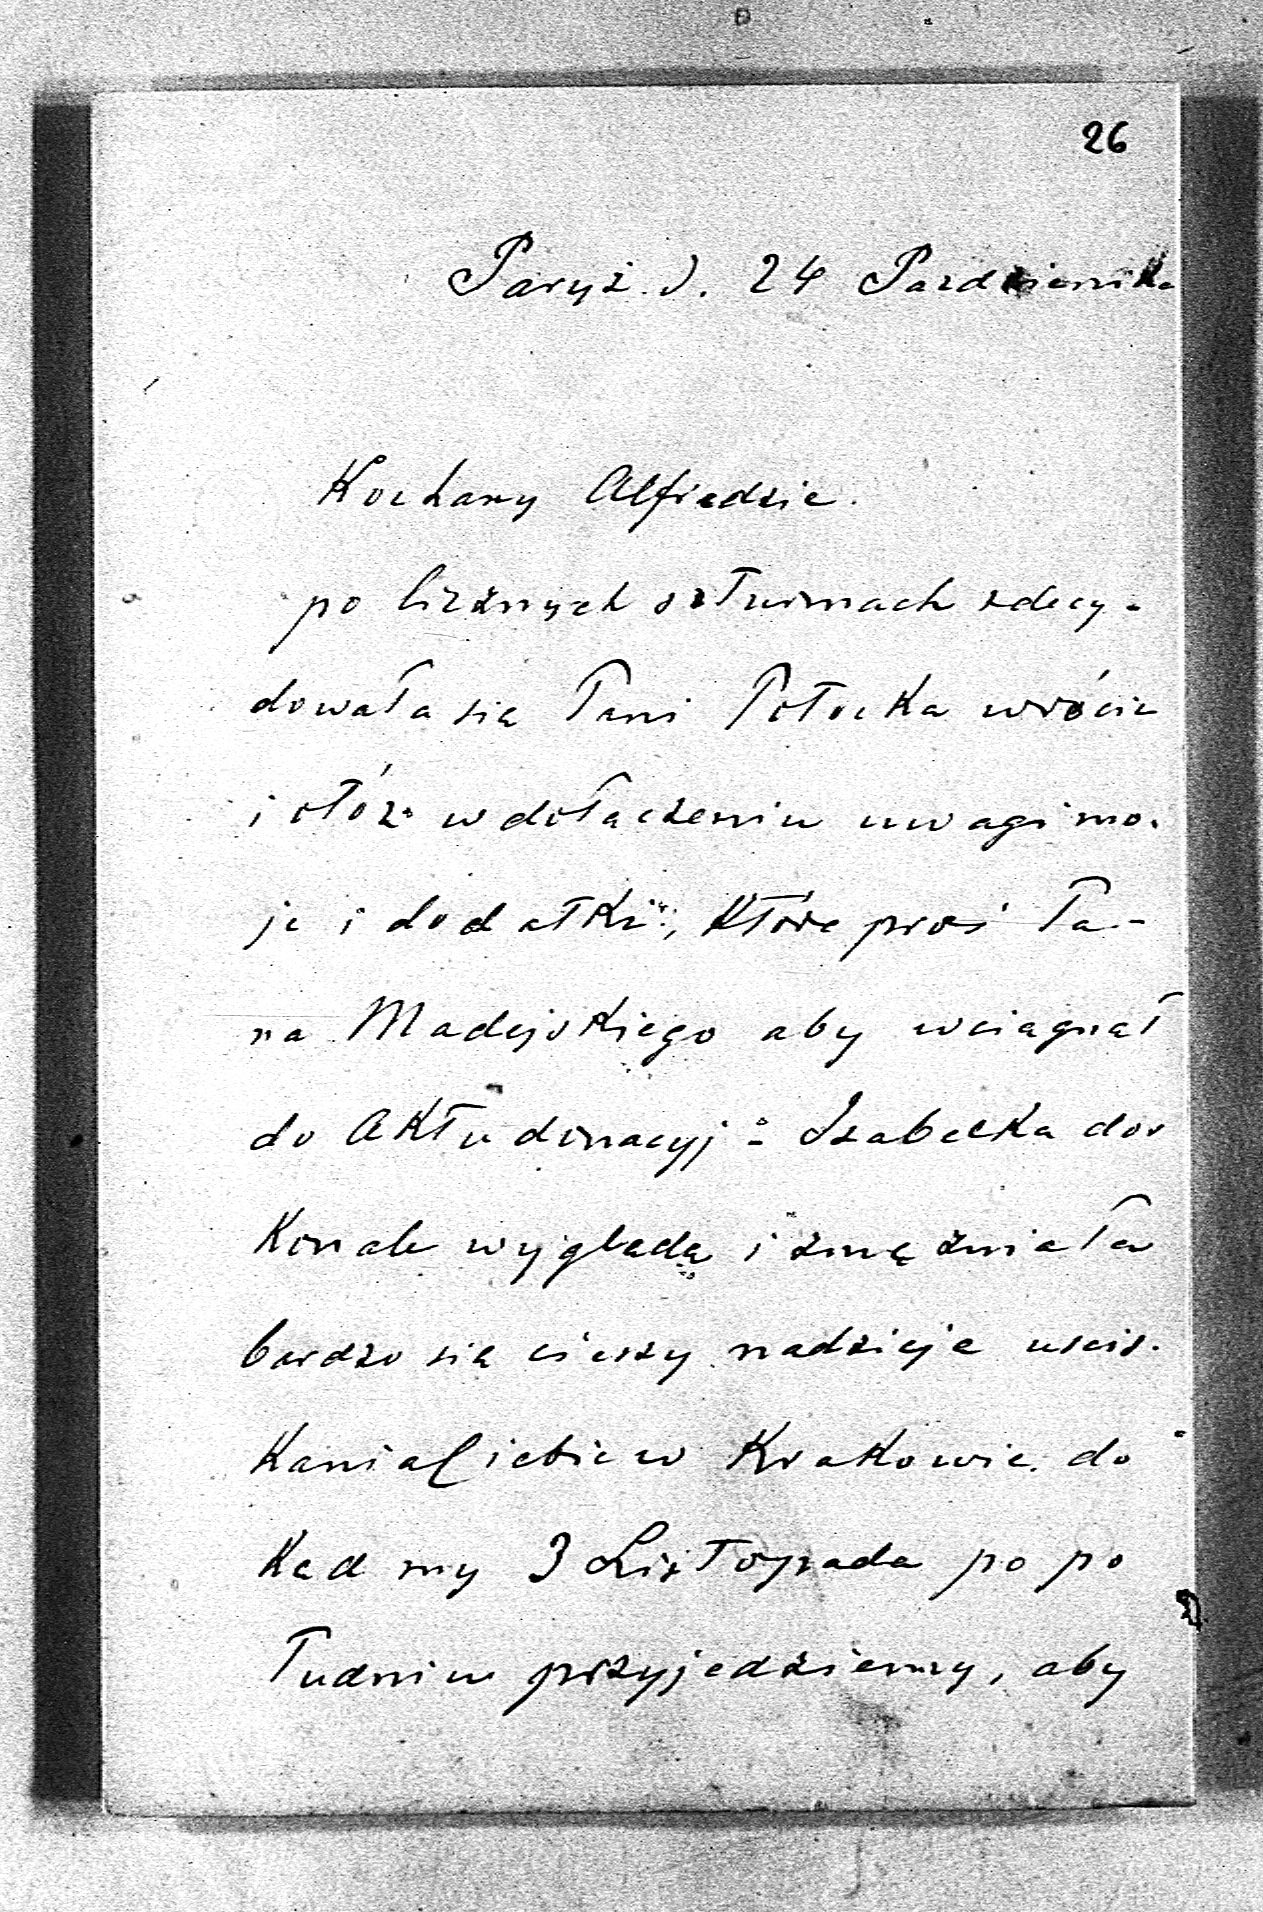 26
Paryż d. 24 Pazdziernika
Kochany Alfredzie.
po licznych szturmach zdecy-
dowała się Pani Potocka wrócić
i otóż w dołaczeniu uwagi mo-
je i dodatki, które proś Pa-
na Madejskiego aby wciagnał
do aktu donacyj - Izabelka dos
konale wyglada i zmężniała
bardzo się cieszy nadzieje uscis-
kania Ciebie w Krakowie do
kąd my 3 Listopada po po
łudniu przyjedziemy, aby